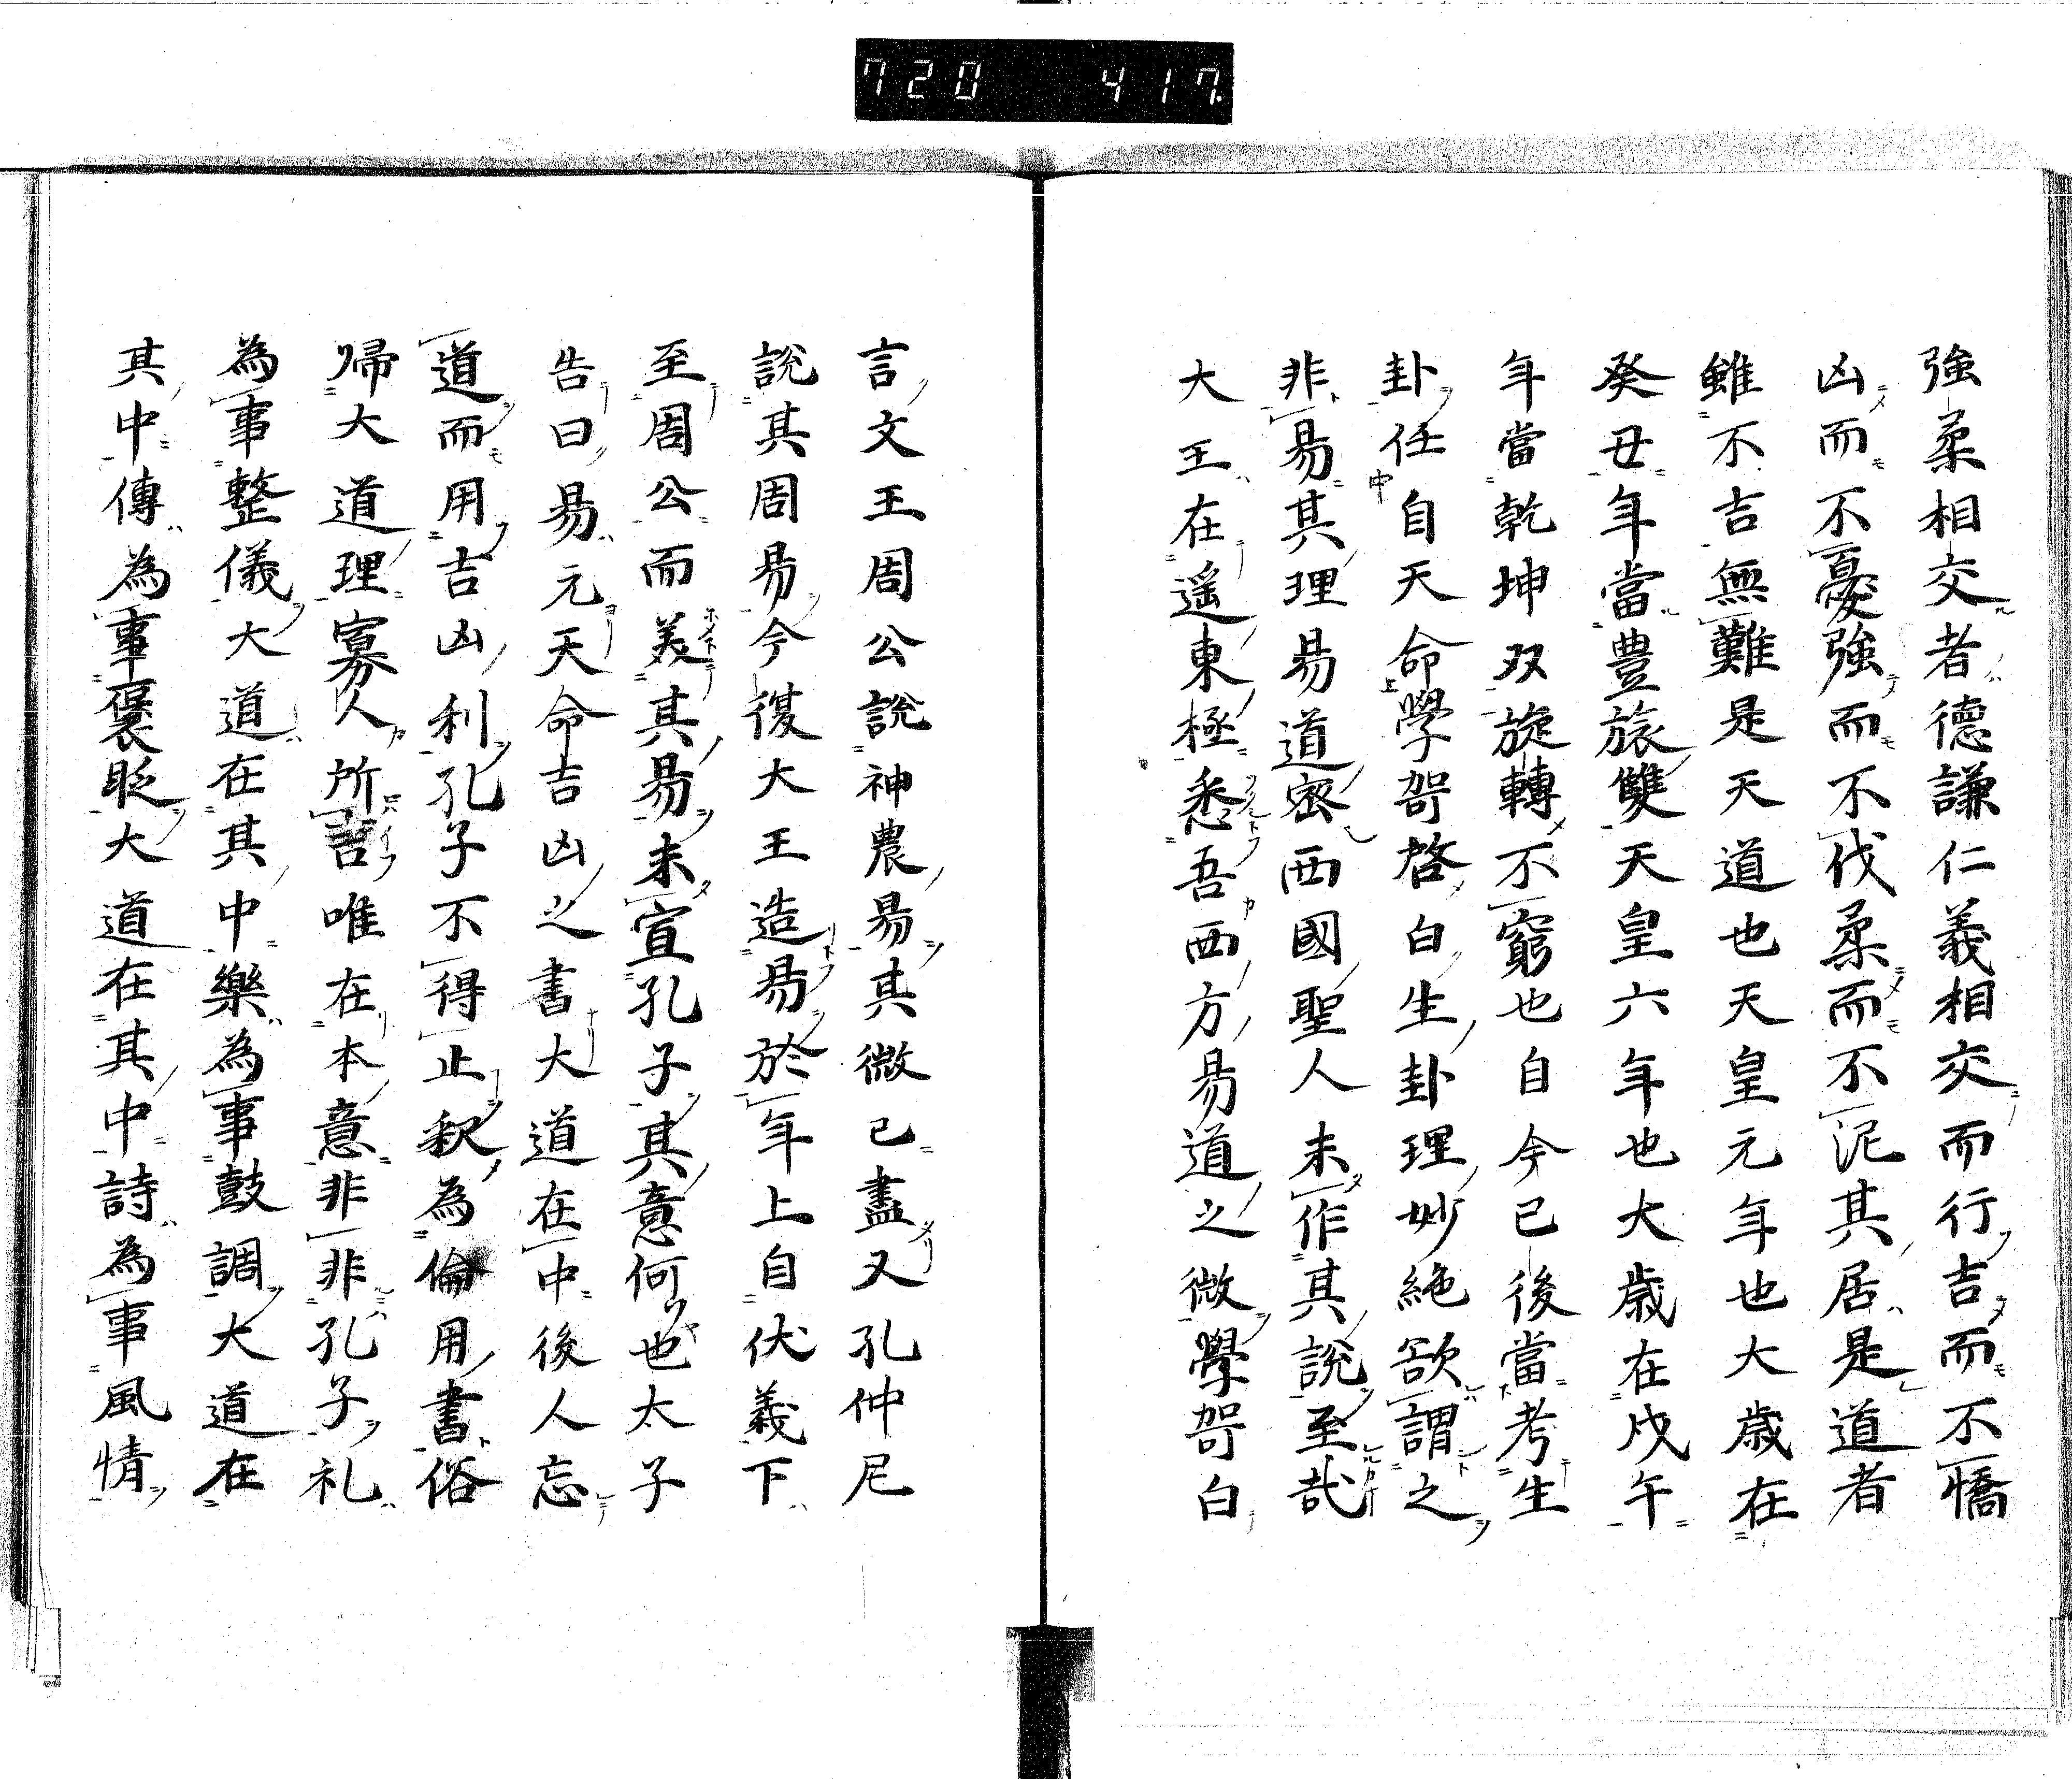 720 417.
強柔相交者德謙仁義相交而行吉而不憍
凶而不憂強而不伐柔而不泥其居是道者
雖不吉無難是天道也天皇元年也大歳在
癸丑年當豊旅雙天天皇六年也大歳在戊午
年當乾坤双旋轉不窮也自今已後當考生
卦任自天命學哿啓白生卦理妙絶欲謂之
非易其理易道密西國聖人未作其說至哉
大王在遥東極悉吾西方易道之微學哿白
言文王周公說神農易其微已盡又孔仲尼
說其周易今復大王造易於年上自伏義下
至周公而美其易未宣孔子其意何也太子
告曰易元天命吉凶之書大道在中後人忘
道而用吉凶利孔子不得止釈為倫用書俗
帰大道理寡人所言唯在本意非非孔子礼
為事整儀大道在其中樂為事鼓調大道在
其中傳為事褒貶大道在其中詩為事風情